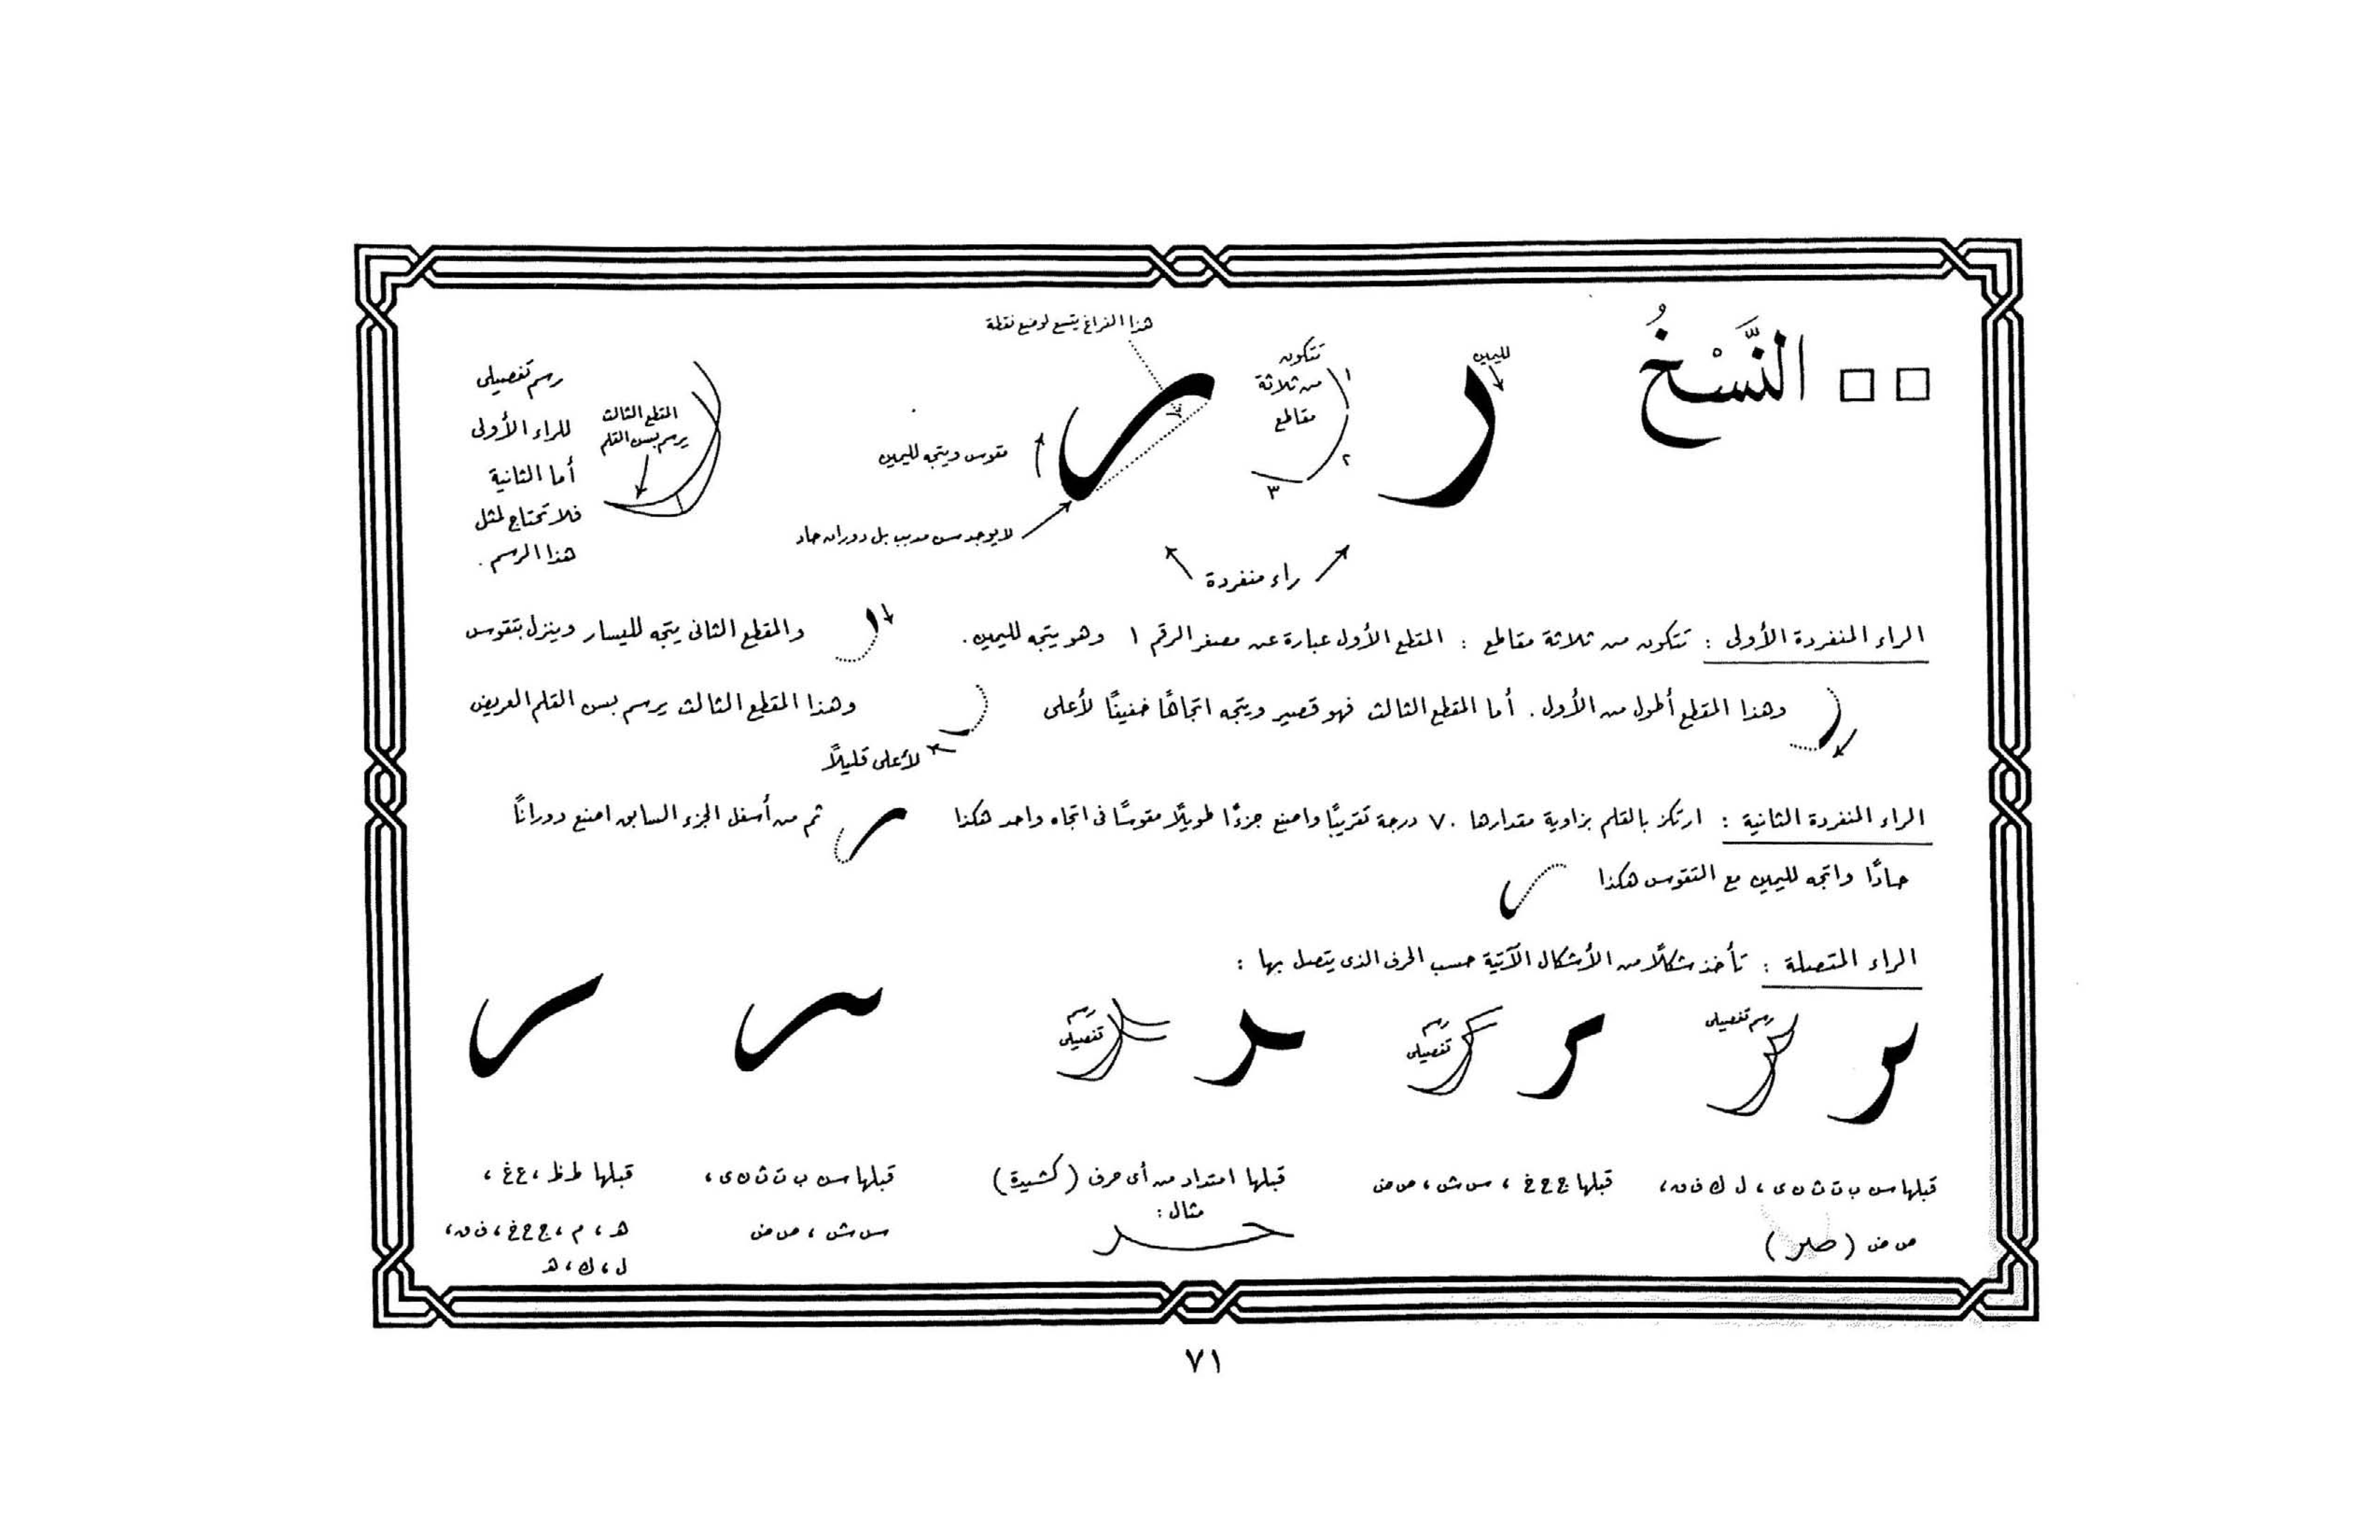 النَّسْخُ
لليمين
تتكون
من ثلاثة
مقاطع
١
٢
٣
هذا الفراغ يتسع لوضع نقطة
مقوس ويتجه لليمين
لا يوجد سن مدبب بل دوران حاد
راء منفردة
المقطع الثالث
يرسم بسن القلم
رسم تفصيلى
للراء الأولى
أما الثانية
فلا تحتاج لمثل
هذا الرسم .
الراء المنفردة الأولى : تتكون من ثلاثة مقاطع : المقطع الأول عبارة عن مصغر الرقم ١ وهو يتجه لليمين . والمقطع الثانى يتجه لليسار وينزل بتقوس
وهذا المقطع أطول من الأول . أما المقطع الثالث فهو قصير ويتجه اتجاهًا خفيفًا لأعلى وهذا المقطع الثالث يرسم بسن القلم العريض
لأعلى قليلًا
الراء المنفردة الثانية : ارتكز بالقلم بزاوية مقدارها ٧٠ درجة تقريبًا واصنع جزءًا طويلًا مقوسًا فى اتجاه واحد هكذا ثم من أسفل الجزء السابق اصنع دورانًا
حادًا واتجه لليمين مع التقوس هكذا
الراء المتصلة : تأخذ شكلًا من الأشكال الآتية حسب الحرف الذى يتصل بها :
ر
رسم تفصيلى
ر
رسم
تفصيلى
ر
رسم
تفصيلى
ر
ر
قبلها س ب ت ث ن ى ، ل ك ف ق ،
ص ض ( صر )
قبلها ج ح خ ، س ش ، ص ض
قبلها امتداد من أى حرف (كشيدة)
مثال :
حـر
قبلها س ب ت ث ن ى ،
س ش ، ص ض
قبلها ط ظ ، ع غ ،
هـ ، م ، ج ح خ ، ف ق ،
ل ، ك ، هـ
٧١